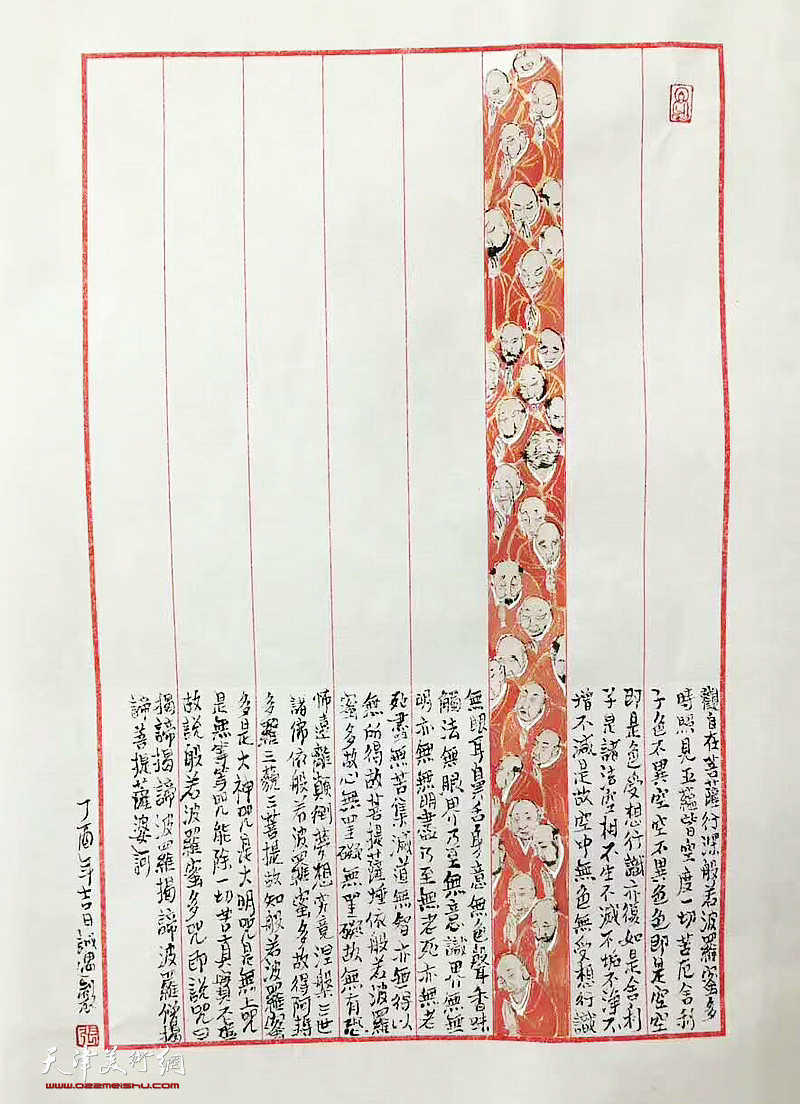 觀自在菩薩行深般若波羅蜜多
時照見五蘊皆空度一切苦厄舍利
子色不異空空不異色色即是空空
即是色受想行識亦復如是舍利
子是諸法空相不生不滅不垢不淨不
增不減是故空中無色無受想行識
無眼耳鼻舌身意無色聲香味
觸法無眼界乃至無意識界無無
明亦無無明盡乃至無老死亦無老
死盡無苦集滅道無智亦無得以
無所得故菩提薩埵依般若波羅
蜜多故心無罣礙無罣礙故無有恐
怖遠離顛倒夢想究竟涅槃三世
諸佛依般若波羅蜜多故得阿耨
多羅三藐三菩提故知般若波羅蜜
多是大神咒是大明咒是無上咒
是無等等咒能除一切苦真實不虛
故說般若波羅蜜多咒即說咒曰
揭諦揭諦波羅揭諦波羅僧揭
諦菩提薩婆訶
丁酉年吉日誠
天津美術網
www.022meishu.com